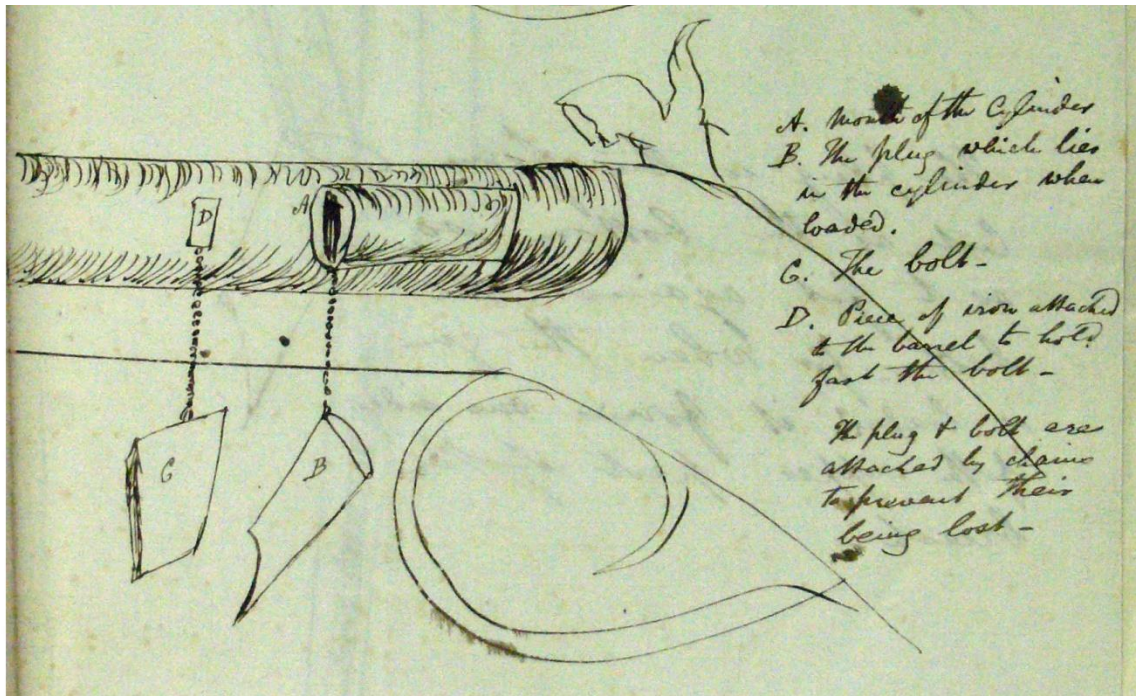 D
A
C
B
A. Mouth of the Cylinder
B. The plug which lies
in the cylinder when
loaded.
C. The bolt -
D. Piece of iron attached
to the barrel to hold
fast the bolt -
The plug & bolt are
attached by chains
to prevent their
being lost -